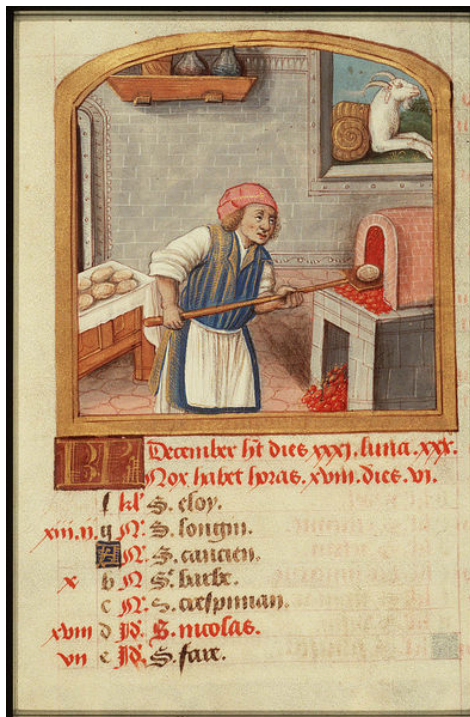 KL December ht dies xxxi. luna. xxx.
Nox habet horas. xviii. dies. vi.
f kl' S. eloy.
xiii. ii. g N. S. longin.
A N. S. cancien.
x b N S. barbe.
c N. S. crespinian.
xviii d Id. S. nicolas.
vii e Id. S. fare.